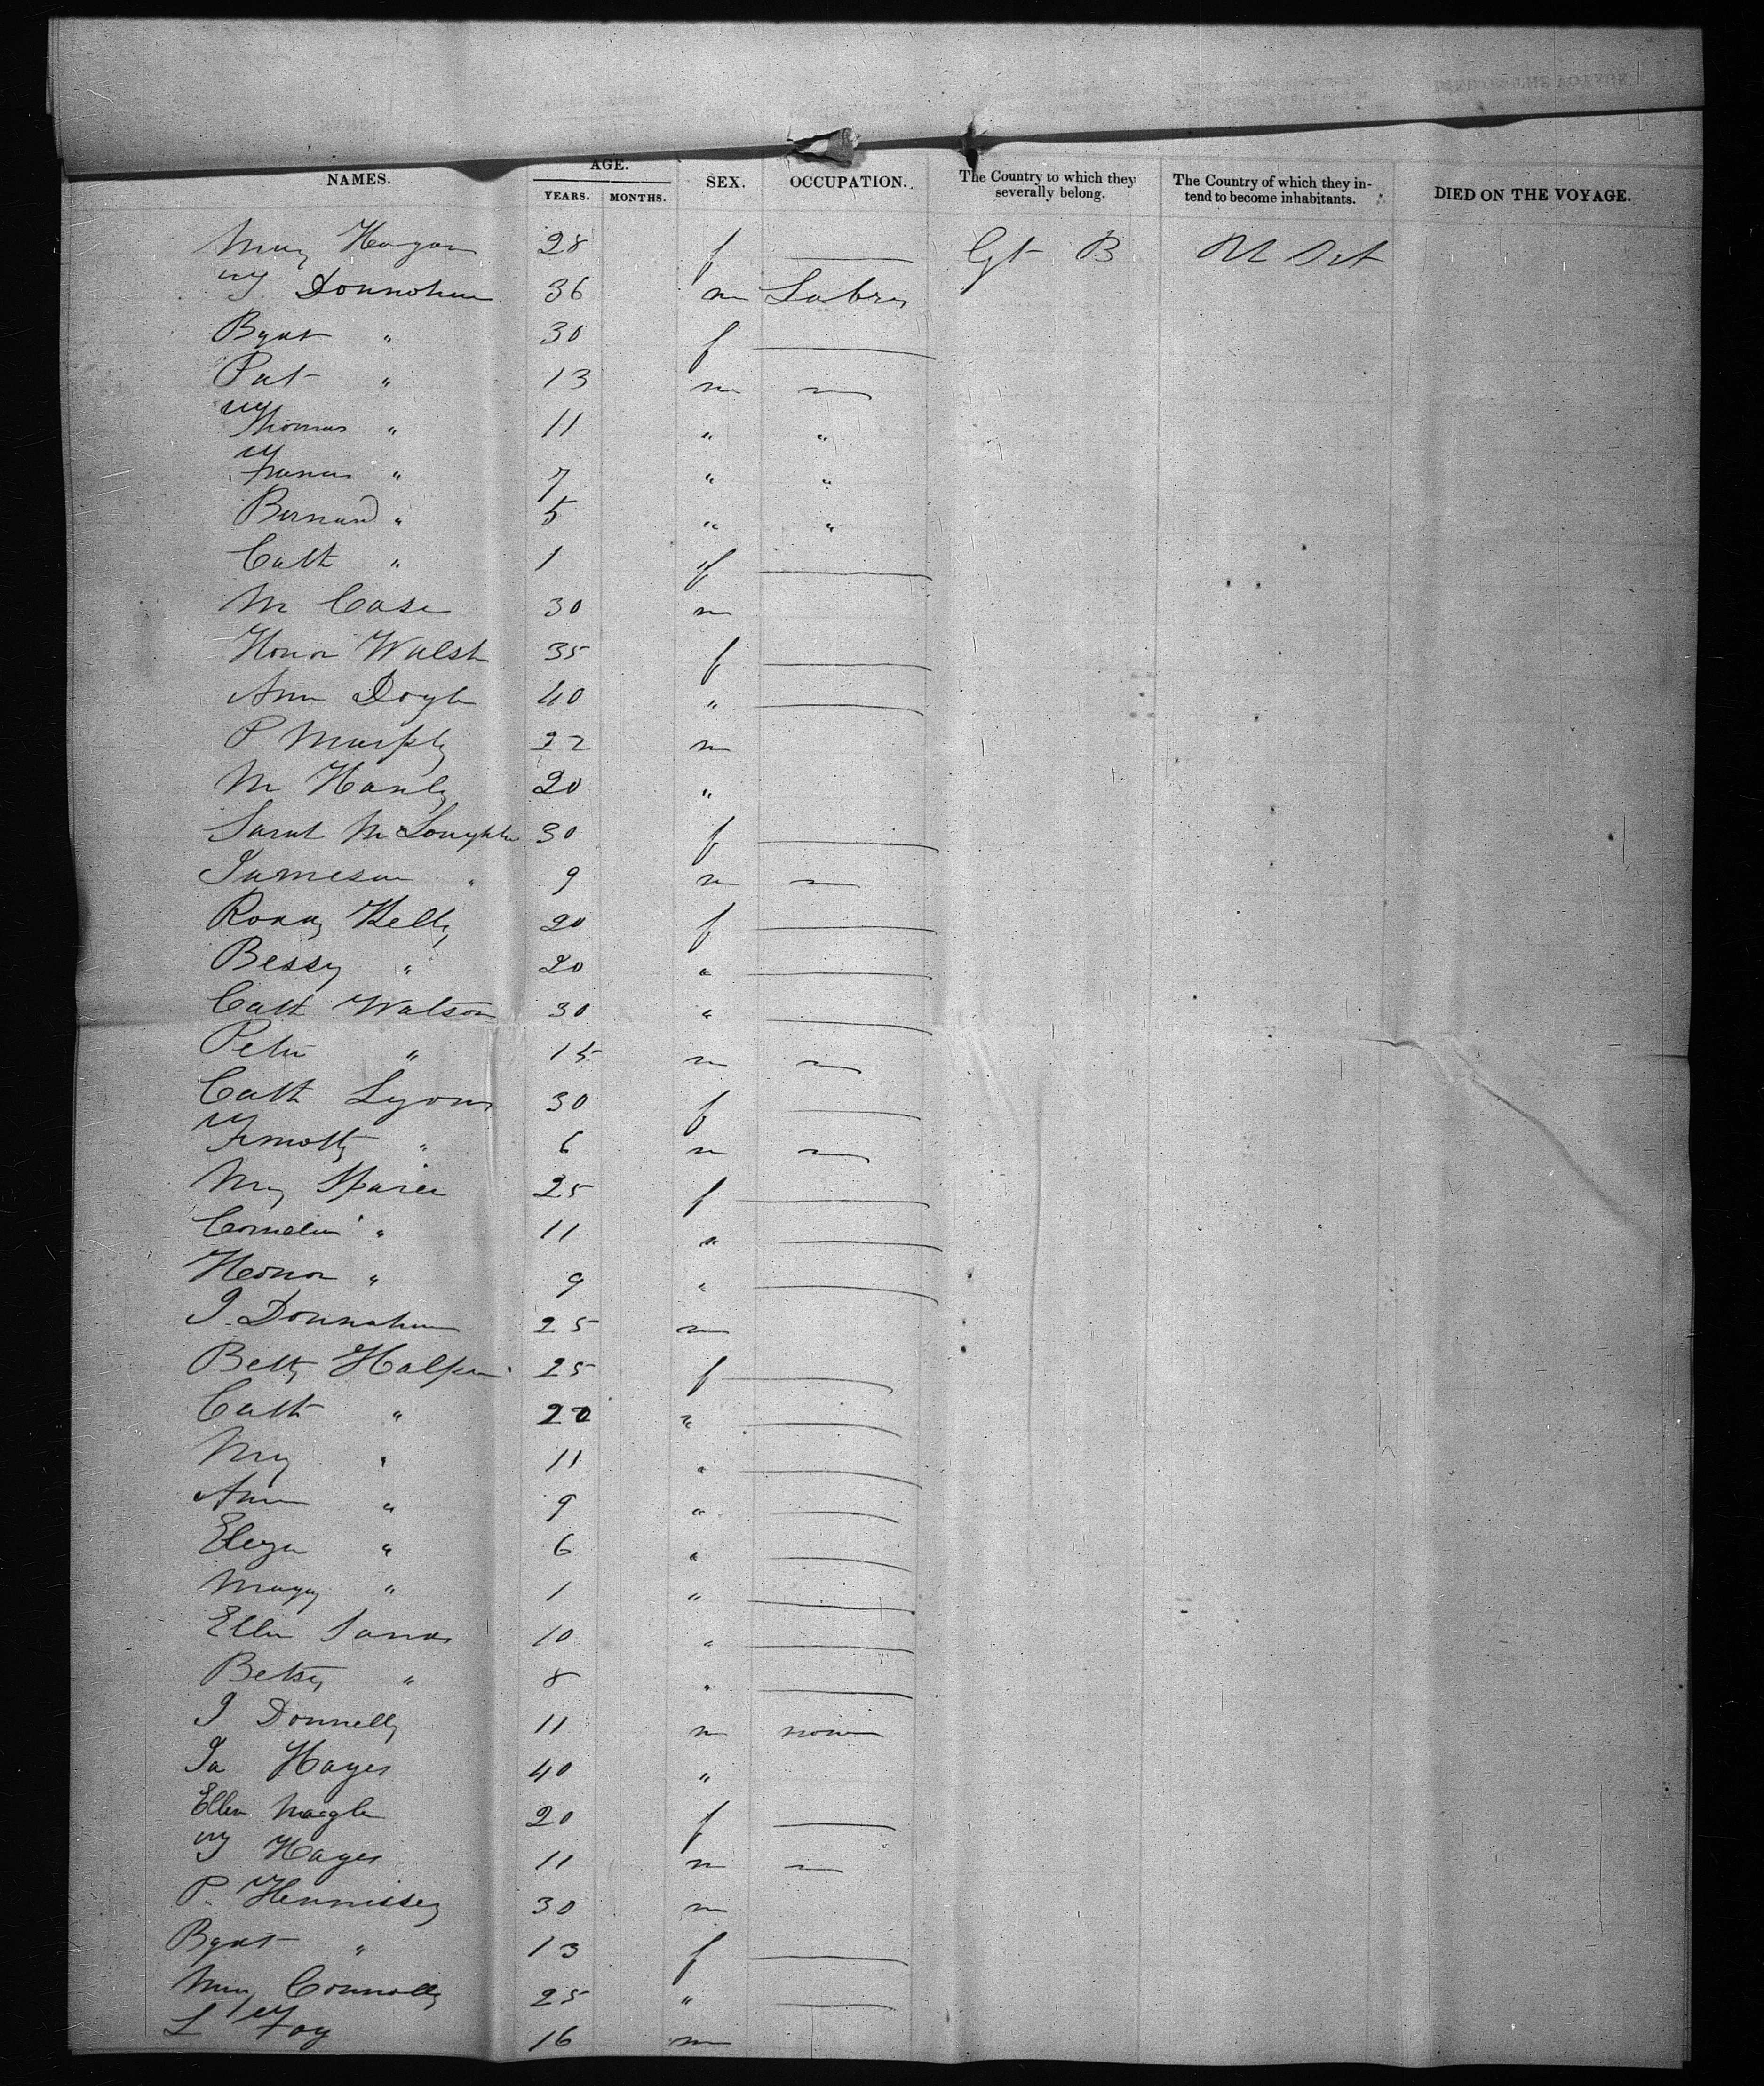 NAMES. AGE. YEARS. MONTHS. SEX. OCCUPATION. The Country to which they severally belong. The Country of which they intend to become inhabitants. DIED ON THE VOYAGE.
Mary Hogan 28 f — Gt B U Sts
T Donnohue 36 m Labrer
Bgat " 30 f —
Pat " 13 m —
Thomas " 11 " "
Francis " 7 " "
Bernard " 5 " "
Cath " 1 f —
M Case 30 m
Honor Walsh 35 f —
Ann Doyle 40 " —
P Murphy 22 m
M Hanly 20 "
Sarah McLoughlin 30 f —
Jameson " 9 m —
Kelly 20 f —
Bessy " 20 " —
Cath Watson 30 " —
Peter " 15 m —
Cath Lyons 30 f —
Timothy " 6 m —
My 25 f —
Cornelia " 11 " —
Honor " 9 " —
J. Donnahue 25 m
Betty Halpin 25 f —
Cath " 20 " —
My " 11 " —
Ann " 9 " —
Eliza " 6 " —
Maggy " 1 " —
Ellen 10 " —
Betsy " 8 " —
J Donnelly 11 m none
Ja Hayes 40 "
Ellen Nagle 20 f —
T Hayes 11 m —
P. Hennissey 30 m
Bgat " 13 f —
Mary Connolly 25 " —
L Foy 16 m